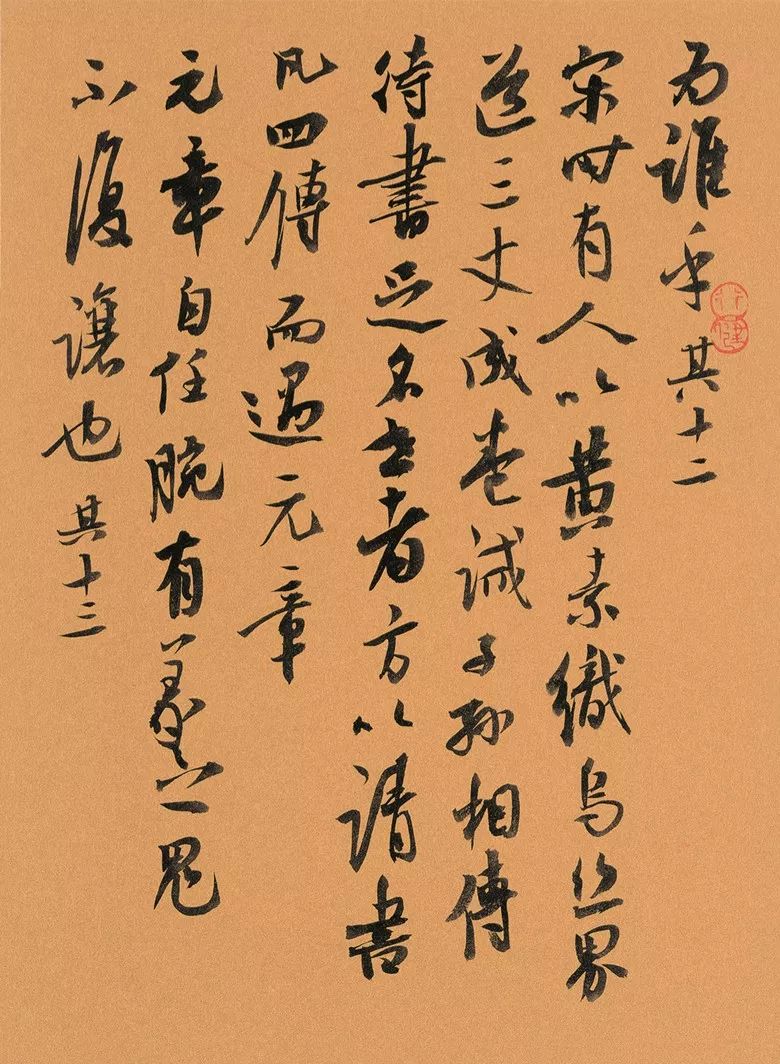 为誰乎 其十二
宋时有人以黄素織烏丝界
道三丈成卷誡子孫相傳
待書足名世者方以請書
凡四傳而遇元章
元章自任腕有羲之鬼
不復讓也 其十三
行健